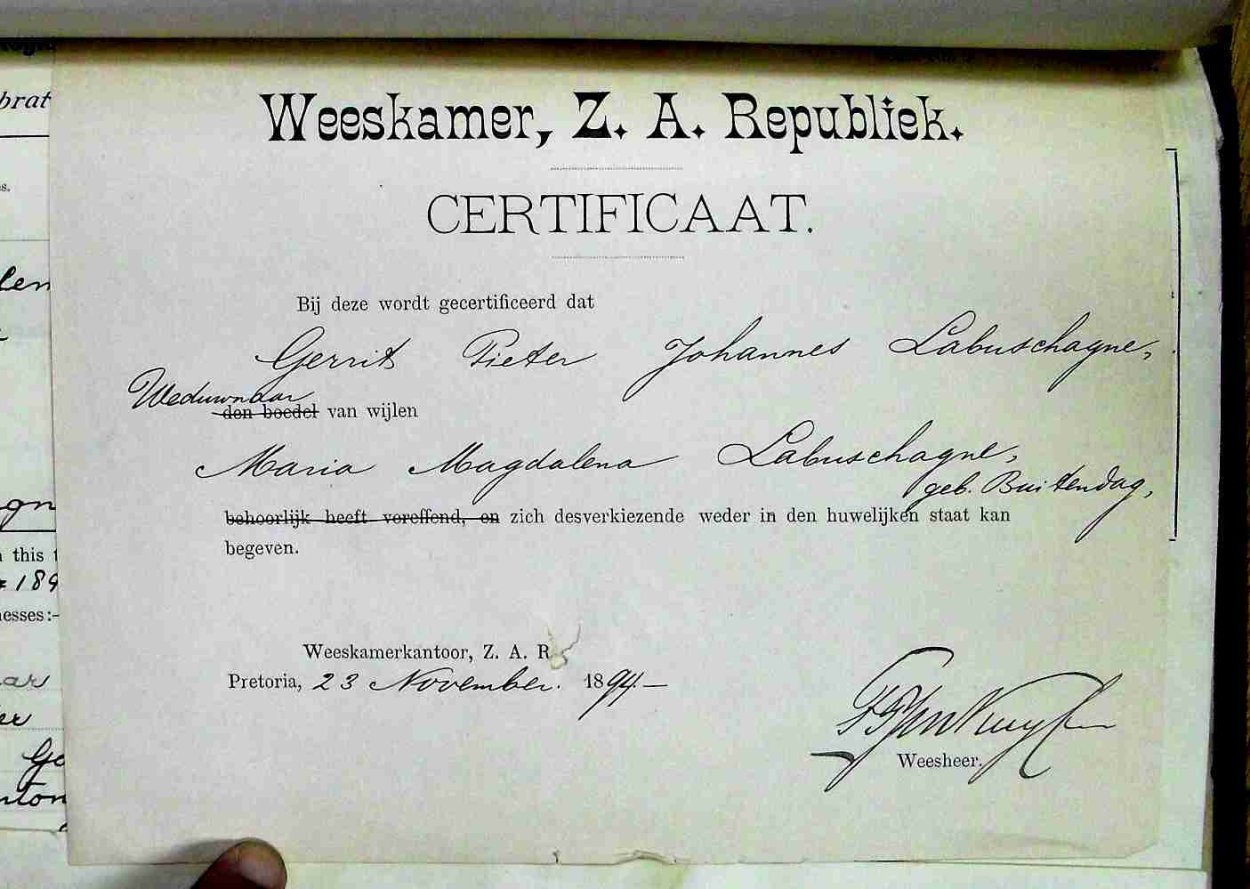 brat
s.
len
gn
n this t
189
nesses:-
ar
er
Ge
nton
Weeskamer, Z. A. Republiek.
CERTIFICAAT.
Bij deze wordt gecertificeerd dat
Gerrit Pieter Johannes Labuschagne,
Weduwnaar
den boedel van wijlen
Maria Magdalena Labuschagne,
geb. Buitendag,
behoorlijk heeft vereffend, en zich desverkiezende weder in den huwelijken staat kan
begeven.
Weeskamerkantoor, Z. A. R
Pretoria, 23 November. 1894.—
Weesheer.